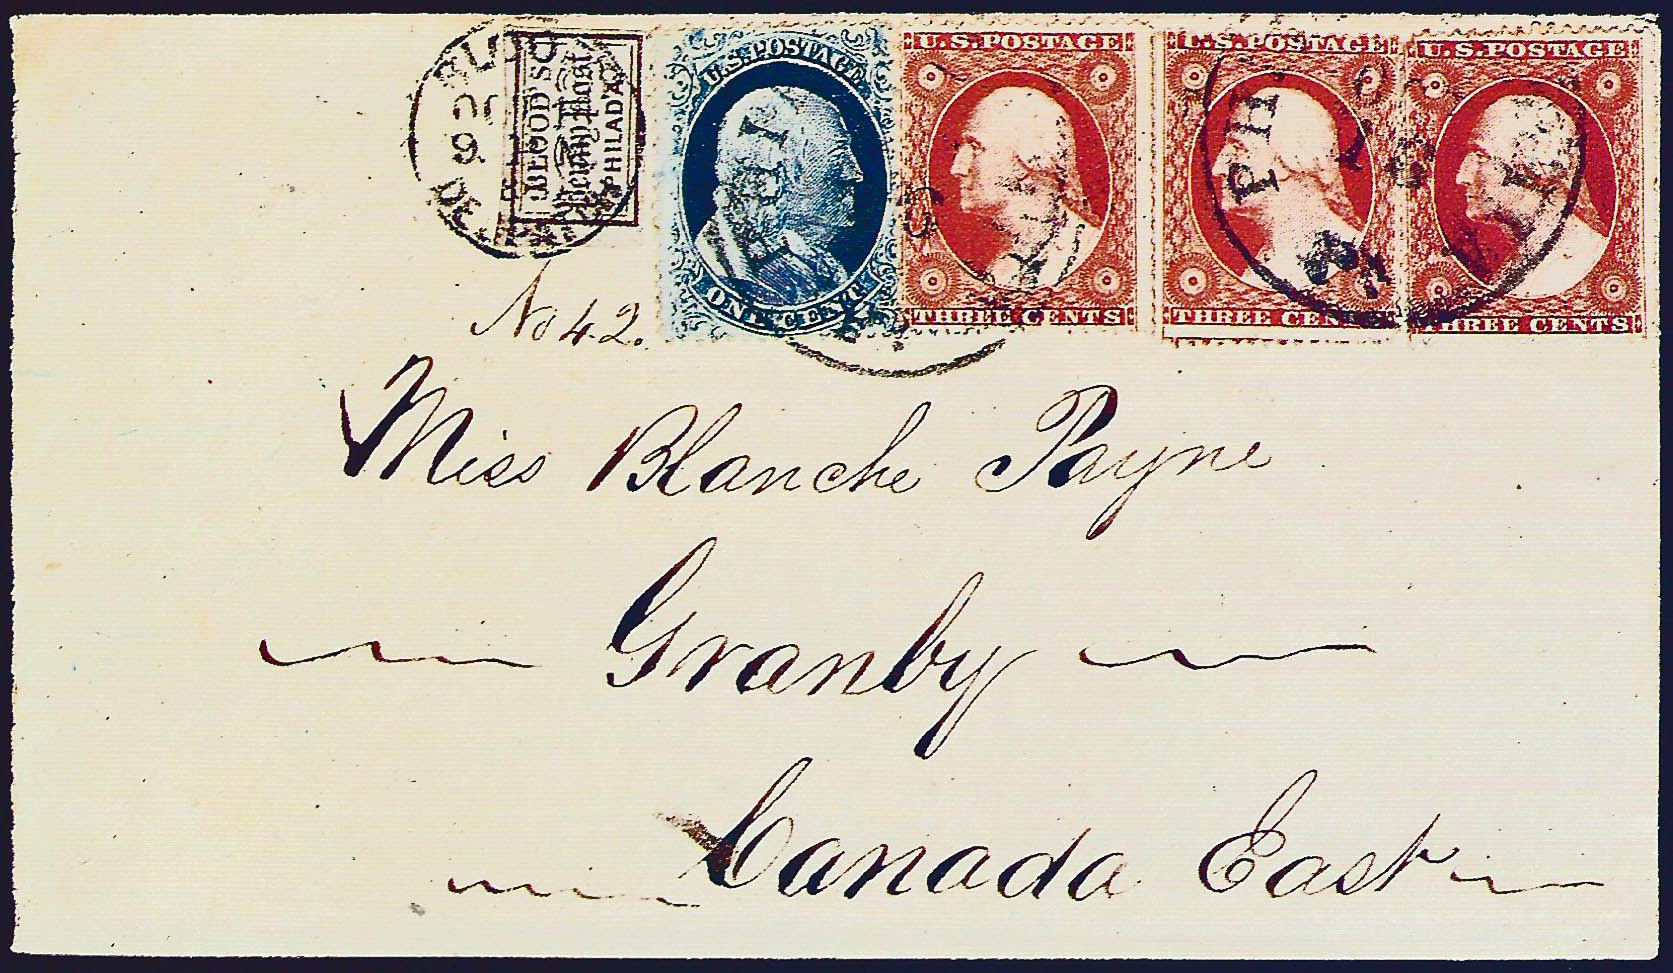 BLOOD'S
Penny Post
PHILAD'A
U.S.POSTAGE
ONE CENT
U.S.POSTAGE
THREE CENTS
U.S.POSTAGE
THREE CENTS
U.S.POSTAGE
THREE CENTS
No 42.
Miss Blanche Payne
Granby
Canada East